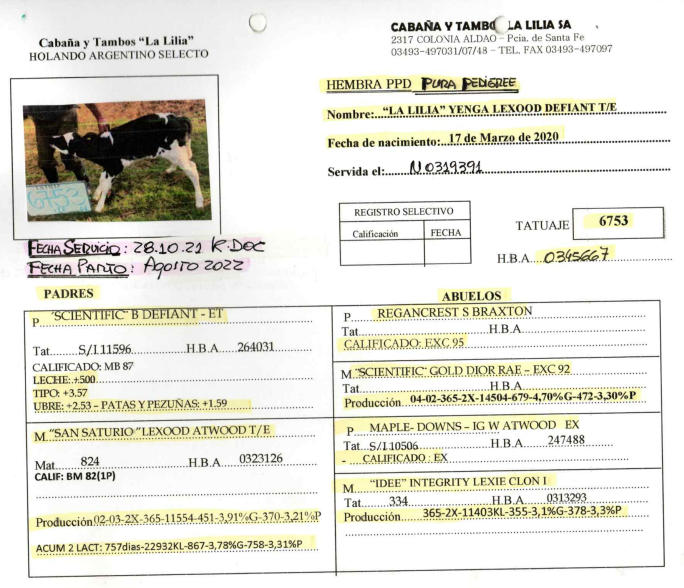 Cabaña y Tambos "La Lilia"
HOLANDO ARGENTINO SELECTO
CABAÑA Y TAMBO LA LILIA SA
2317 COLONIA ALDAO – Pcia. de Santa Fe
03493-497031/07/48 – TEL. FAX 03493-497097
HEMBRA PPD PURA PEDIGREE
Nombre:..."LA LILIA" YENGA LEXOOD DEFIANT T/E
Fecha de nacimiento:..17 de Marzo de 2020
Servida el:......N0319391
REGISTRO SELECTIVO
Calificación FECHA
TATUAJE 6753
H.B.A....0345667
6753
FECHA SERVICIO: 28.10.21 R.DOC
FECHA PARTO: Agosto 2022
PADRES
P "SCIENTIFIC" B DEFIANT - ET
Tat......S/I 11596 H.B.A 264031
CALIFICADO: MB 87
LECHE: +500
TIPO: +3.57
UBRE: +2.53 – PATAS Y PEZUÑAS: +1.59
M "SAN SATURIO" LEXOOD ATWOOD T/E
Mat. 824 H.B.A 0323126
CALIF: BM 82(1P)
Producción 02-03-2X-365-11554-451-3,91%G-370-3,21%P
ACUM 2 LACT: 757dias-22932KL-867-3,78%G-758-3,31%P
ABUELOS
P REGANCREST S BRAXTON
Tat. H.B.A
CALIFICADO: EXC 95
M "SCIENTIFIC" GOLD DIOR RAE – EXC 92
Tat. H.B.A
Producción 04-02-365-2X-14504-679-4,70%G-472-3,30%P
P MAPLE- DOWNS – IG W ATWOOD EX
Tat...S/I 10506 H.B.A 247488
- CALIFICADO : EX
M "IDEE" INTEGRITY LEXIE CLON I
Tat. 334 H.B.A 0313293
Producción 365-2X-11403KL-355-3,1%G-378-3,3%P